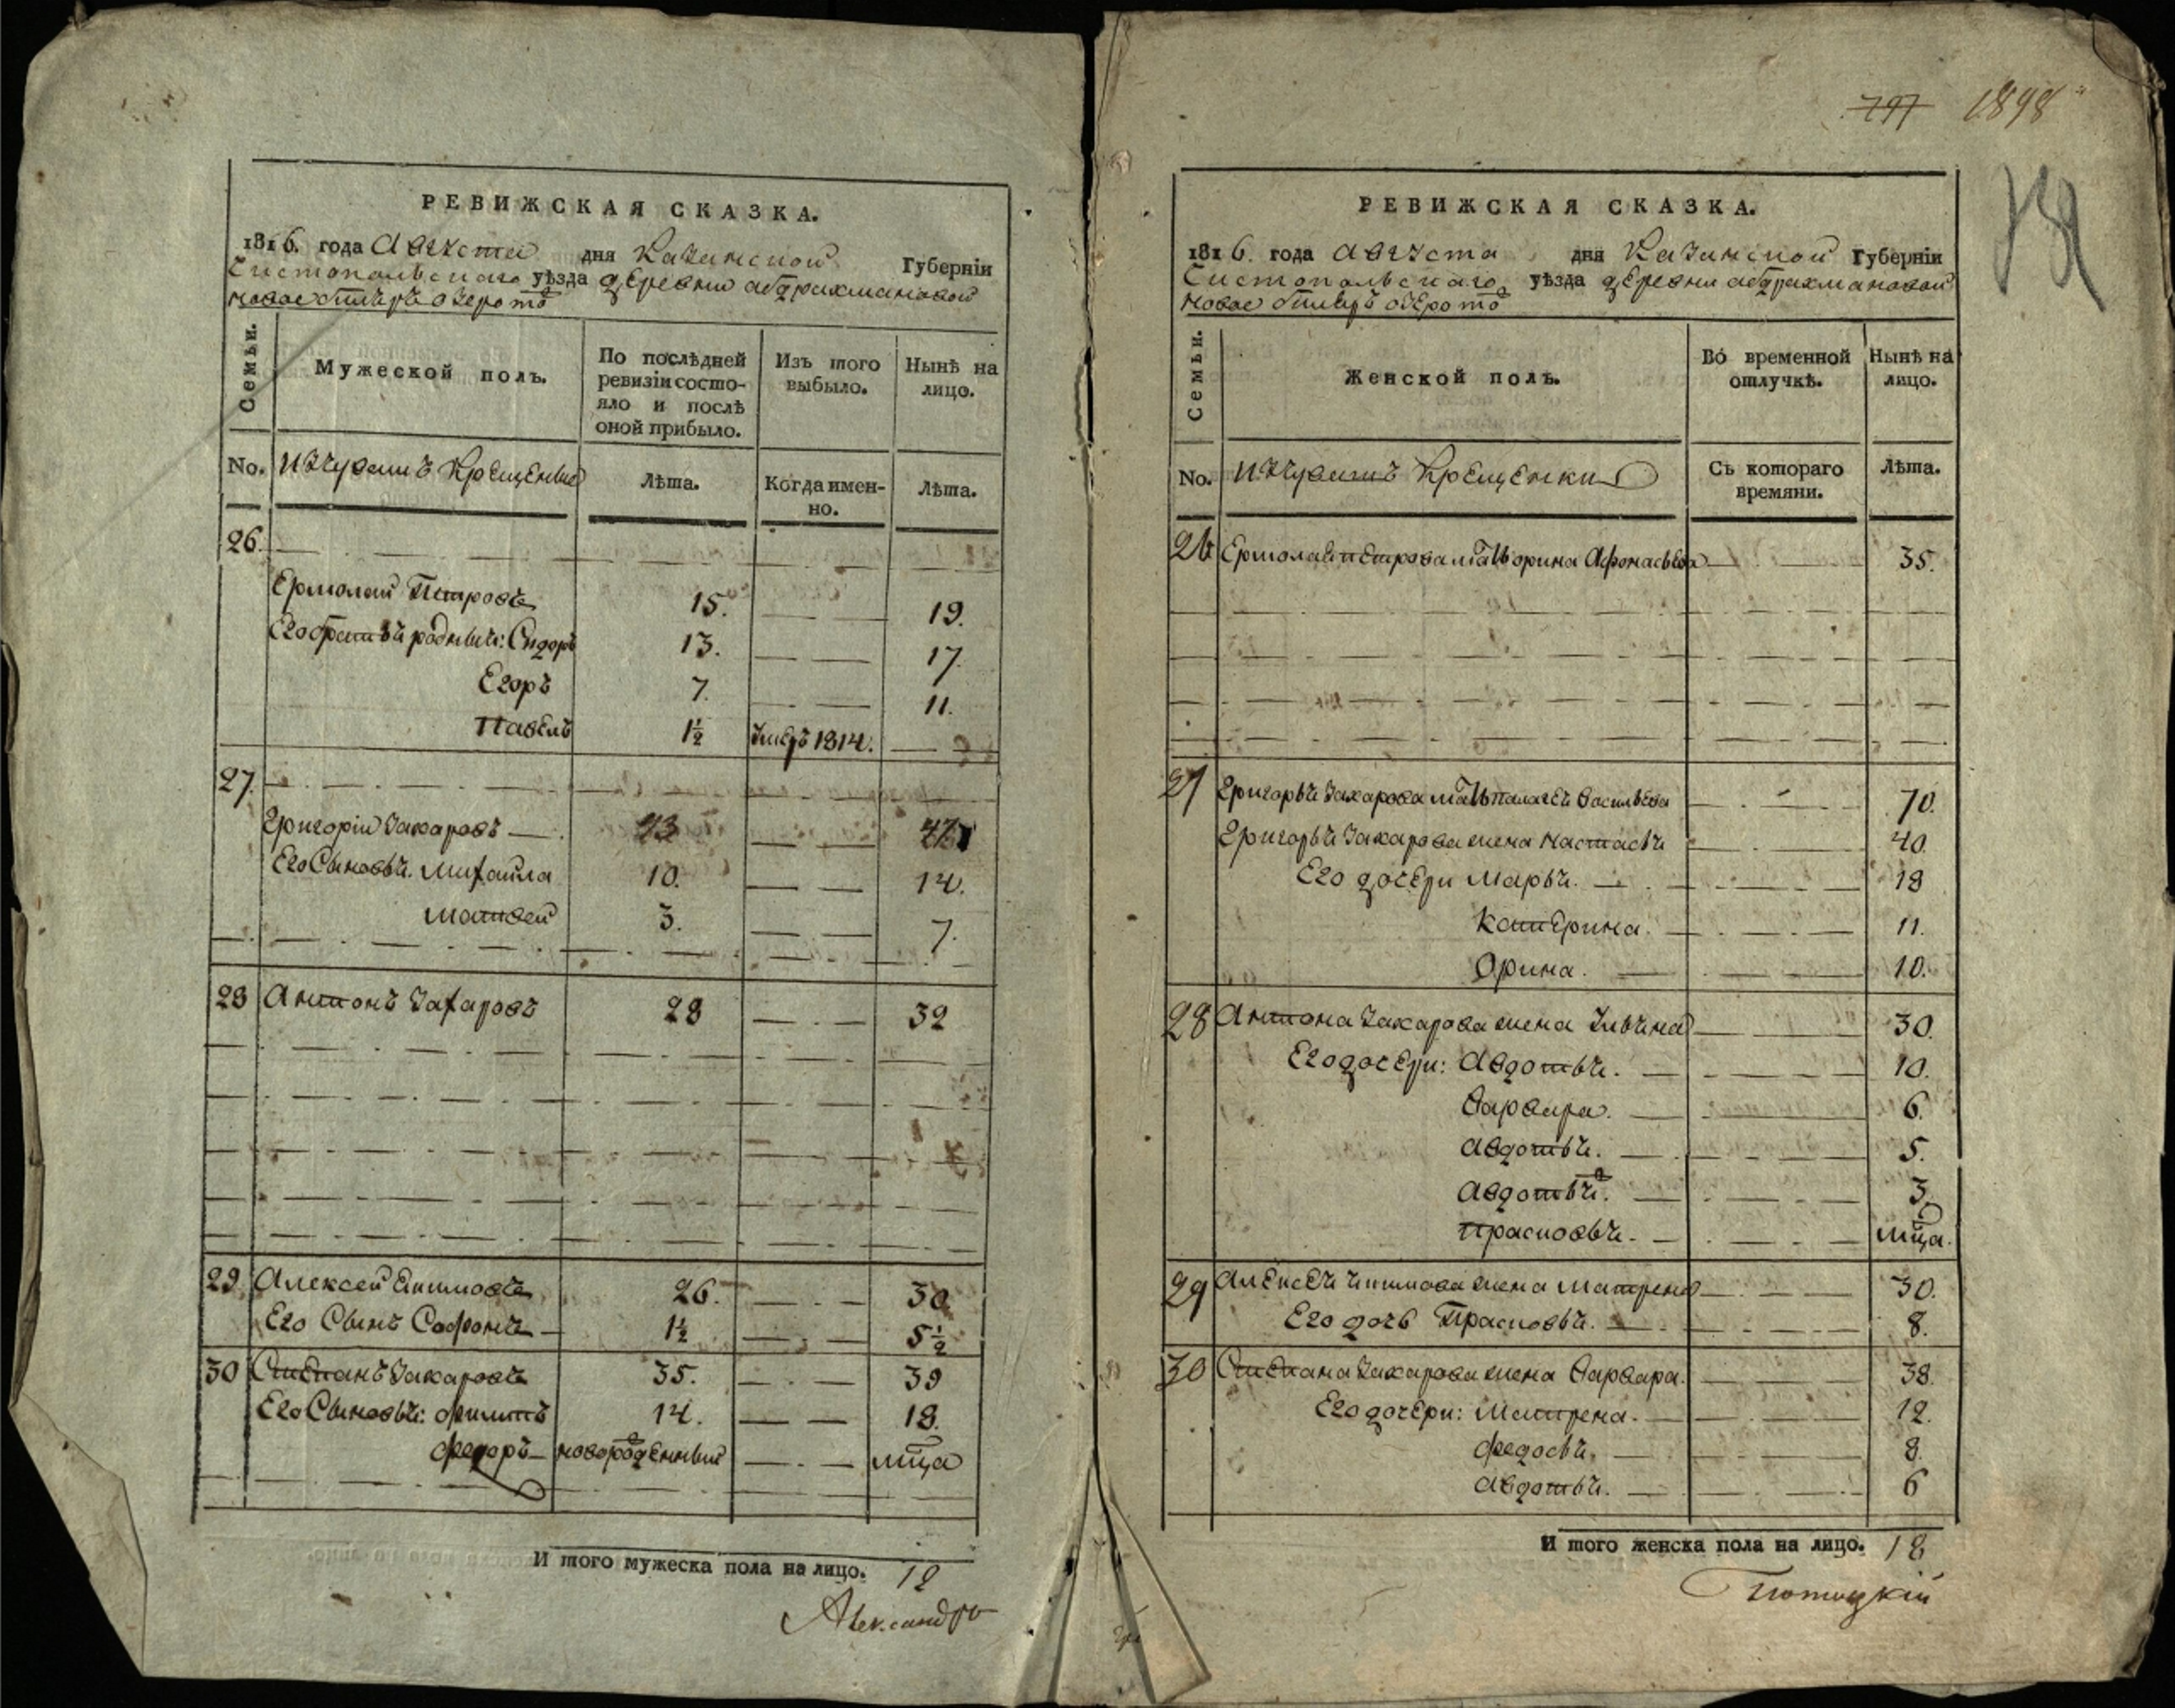 РЕВИЖСКАЯ СКАЗКА.
1816. года Августа дня Казанской Губерніи
Чистопольскаго уѣзда деревни абдрахмановой
новое
Семьи.
Мужеской полъ.
По послѣдней ревизіи состояло и послѣ оной прибыло.
Изъ того выбыло.
Нынѣ на лицо.
No.
изчувашъ крещеныя
Лѣта.
Когда именно.
Лѣта.
26.
Ермолай Петровъ 15. 19.
Его братья родныя: Сидоръ 13. 17.
Егоръ 7. 11.
Павелъ 1½ умеръ 1814.
27.
Григорій Захаровъ 43 47
Его Сыновья. Михайла 10. 14.
Матвей 3. 7.
28 Антонъ Захаровъ 28 32
29 Алексей 26. 30
Его Сынъ Софонъ 1½ 5½
30 Степанъ Захаровъ 35. 39
Его Сыновья: Филипъ 14. 18.
Федоръ новорожденный мца
И того мужеска пола на лицо. 12
Александръ
797 1898
РЕВИЖСКАЯ СКАЗКА.
1816. года Августа дня Казанской Губерніи
Чистопольскаго уѣзда деревни абдрахмановой
новое
Семьи.
Женской полъ.
Во временной отлучкѣ.
Нынѣ на лицо.
No.
изчувашъ крещенки
Съ котораго времяни.
Лѣта.
26 Ермолая петрова мать орина Афонасьева 35.
27 Григорья Захарова мать палагея Васильева 70.
Григорья Захарова жена настасья 40.
Его дочери марья. 18
катерина. 11.
Орина. 10.
28 Антона Захарова жена Ульяна 30.
Его дочери: Авдотья. 10.
Варвара. 6.
Авдотья. 5.
Авдотья. 3
прасковья. мца.
29 Алексея жена матрена 30.
Его дочь Прасковья. 8.
30 Степана Захарова жена Варвара. 38.
Его дочери: Матрена. 12.
Федосья. 8.
Авдотья. 6
И того женска пола на лицо. 18